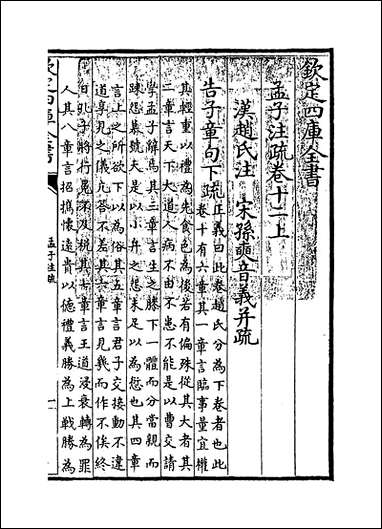 欽定四庫全書
孟子注疏卷十二上
漢趙氏注 宋孫奭音義并疏
告子章句下疏
正義曰此卷趙氏分為下卷者也此
卷十有六章其一章言臨事量宜權
其輕重以禮為先食色為後若有偏殊從其大者其
二章言天下大道人病不由不患不能是以曹交請
學孟子辭焉其三章言生之膝下一體而分當親而
疎怨慕號天是以小弁之怨未足以為愆也其四章
言上之所欲下以為俗其五章言君子交接動不違
道享見之儀亢答不差其六章言見幾而作不俟終
日孔子將行冕不及税其七章言王道浸衰轉為罪
人其八章言招攜懷遠貴以德禮義勝為上戰勝為
欽定四庫全書
孟子注疏
一